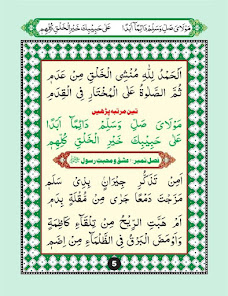 مَوْلَايَ صَلِّ وَسَلِّمْ دَائِمًا أَبَدًا
عَلَى حَبِيْبِكَ خَيْرِ الْخَلْقِ كُلِّهِمِ
اَلْحَمْدُ لِلّٰهِ مُنْشِي الْخَلْقِ مِنْ عَدَمِ
ثُمَّ الصَّلٰوةُ عَلَى الْمُخْتَارِ فِي الْقِدَمِ
تین مرتبہ پڑھیں
مَوْلَايَ صَلِّ وَسَلِّمْ دَآئِمًا اَبَدًا
عَلٰى حَبِيْبِكَ خَيْرِ الْخَلْقِ كُلِّهِمِ
فصل نمبر ۱ عشق و محبت رسول ﷺ
اَمِنْ تَذَكُّرِ جِيْرَانٍ بِذِيْ سَلَمِ
مَزَجْتَ دَمْعًا جَرٰى مِنْ مُّقْلَةٍ بِدَمِ
اَمْ هَبَّتِ الرِّيْحُ مِنْ تِلْقَآءِ كَاظِمَةٍ
وَاَوْمَضَ الْبَرْقُ فِي الظَّلْمَآءِ مِنْ اِضَمِ
5